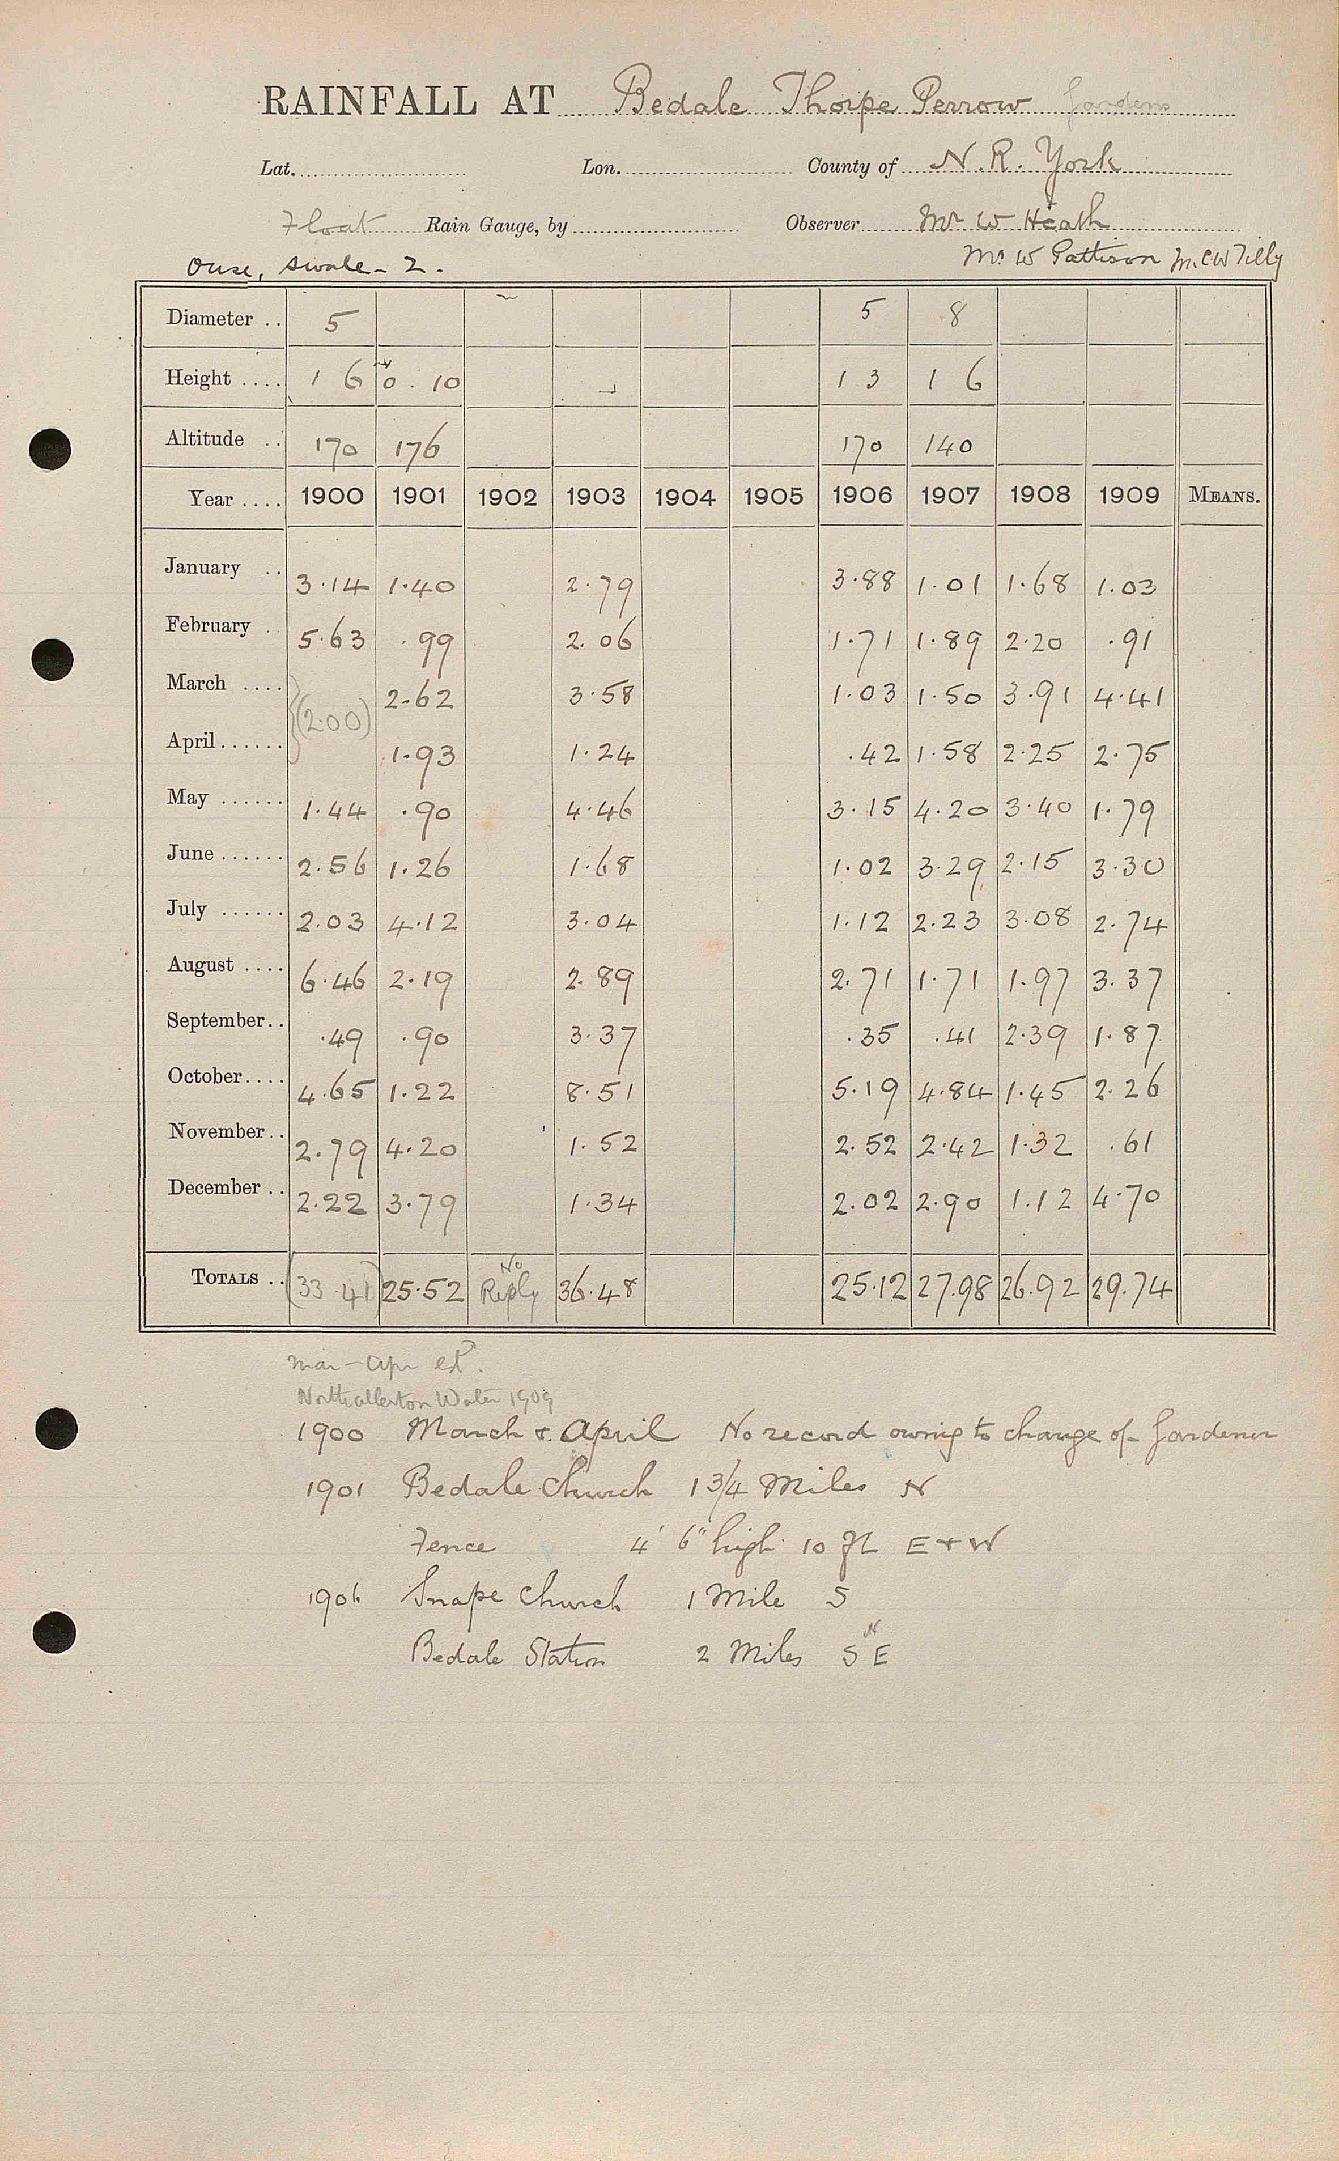 RAINFALL AT Bedale Thorpe Perrow Gardens
Lat. Lon. County of N. R. York
Float Rain Gauge, by Observer Mr W Heath
Ouse, Swale - 2. Mr W Pattison Mr CW Tilly
Diameter .. 5 5 8
Height .... 1 6 0. 10 1 3 1 6
Altitude .. 170 176 170 140
Year .... 1900 1901 1902 1903 1904 1905 1906 1907 1908 1909 MEANS.
January .. 3.14 1.40 2.79 3.88 1.01 1.68 1.03
February . 5.63 .99 2.06 1.71 1.89 2.20 .91
March .... (2.00) 2.62 3.58 1.03 1.50 3.91 4.41
April ...... 1.93 1.24 .42 1.58 2.25 2.75
May ...... 1.44 .90 4.46 3.15 4.20 3.40 1.79
June ...... 2.56 1.26 1.68 1.02 3.29 2.15 3.30
July ...... 2.03 4.12 3.04 1.12 2.23 3.08 2.74
August .... 6.46 2.19 2.89 2.71 1.71 1.97 3.37
September.. .49 .90 3.37 .35 .41 2.39 1.87
October.... 4.65 1.22 8.51 5.19 4.84 1.45 2.26
November.. 2.79 4.20 1.52 2.52 2.42 1.32 .61
December .. 2.22 3.79 1.34 2.02 2.90 1.12 4.70
TOTALS .. (33 41) 25.52 No Reply 36.48 25.12 27.98 26.92 29.74
Mar - Apr
Northallerton Water 1909
1900 March & April No record owing to change of Gardener
1901 Bedale Church 1 3/4 Miles N
Fence 4' 6" high 10 ft E + W
1906 Snape Church 1 Mile S
Bedale Station 2 Miles S E
N